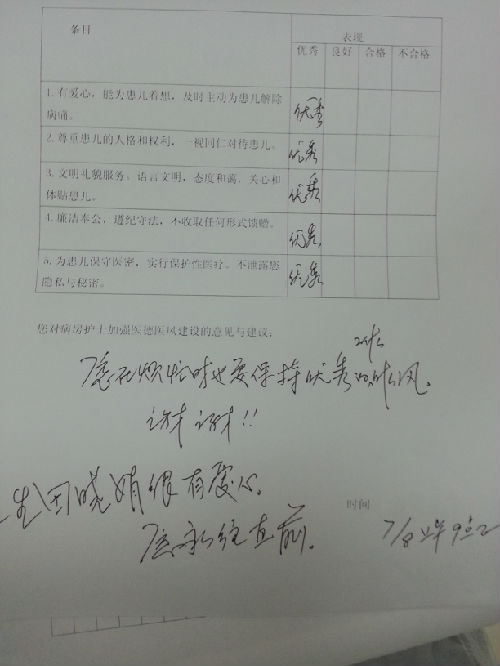 条目
表现
优秀 良好 合格 不合格
1. 有爱心，能为患儿着想，及时主动为患儿解除
病痛。
优秀
2. 尊重患儿的人格和权利，一视同仁对待患儿。
优秀
3. 文明礼貌服务。语言文明，态度和蔼，关心和
体贴患儿。
优秀
4. 廉洁奉公，遵纪守法，不收取任何形式馈赠。
优秀
5. 为患儿保守医密，实行保护性医疗。不泄露患
隐私与秘密。
优秀
您对病房护士加强医德医风建设的意见与建议：
工作
愿在烦忙时也要保持优秀的作风。
谢谢!!
很有爱心。
愿永往直前。
时间
7/8